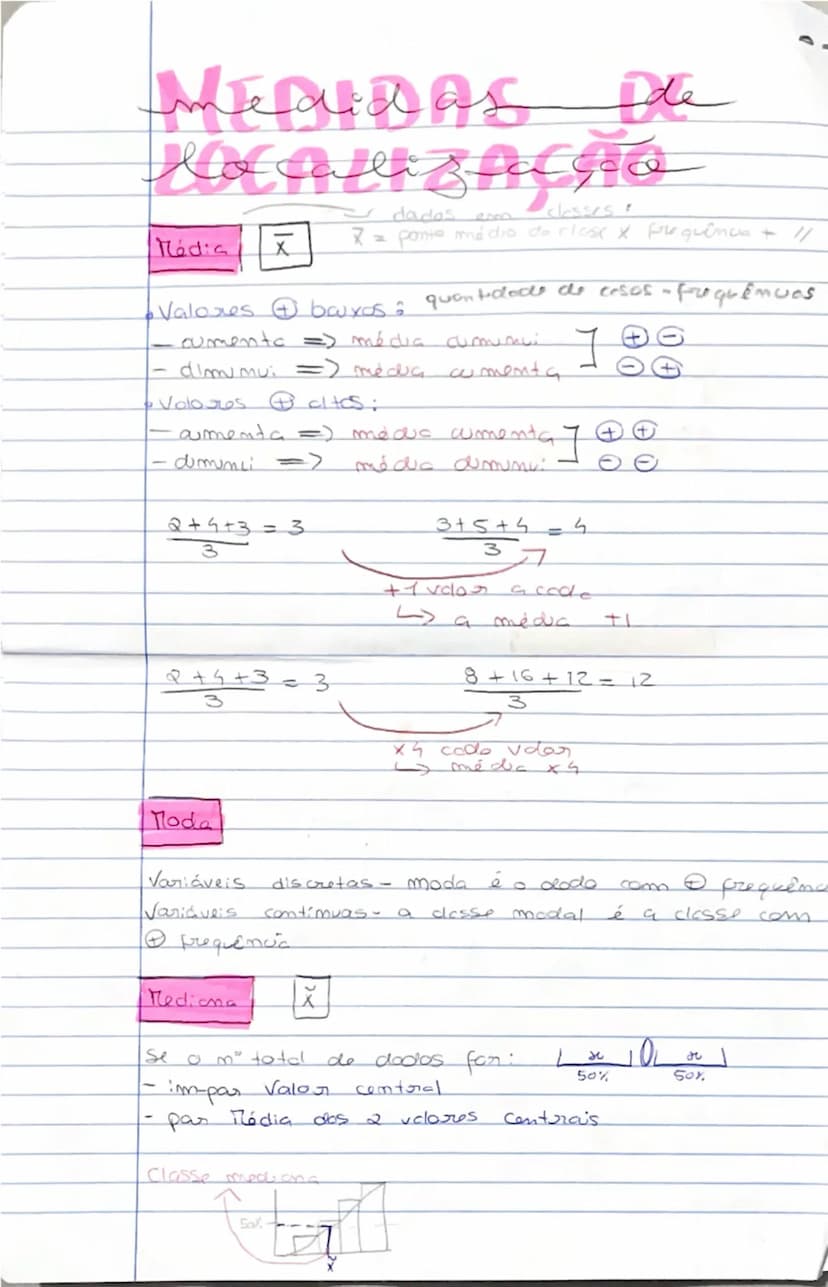 MEDIDAS DE
medidas de
LOCALIZAÇÃO
localização
dados em classes:
Média x̄
x̄ = ponto médio da classe x frequência + //
Valores ⊕ baixos: quantidade de casos - frequências
- aumenta => média diminui ⊕ ⊖
- diminui => média aumenta ⊖ ⊕
Valores ⊕ altos:
- aumenta => média aumenta ⊕ ⊕
- diminui => média diminui ⊖ ⊖
2+4+3 = 3 3+5+4 = 4
3 3
+1 valor a cada
↳ a média +1
2+4+3 = 3 8+16+12 = 12
3 3
x4 cada valor
↳ média x4
Moda
Variáveis discretas - moda é o dado com ⊕ frequênc
Variáveis contínuas - a classe modal é a classe com
⊕ frequência
Mediana x̃
Se o nº total de dados for: 50% 50%
- ímpar Valor central
- par Média dos 2 valores centrais
Classe mediana
50%
x̃